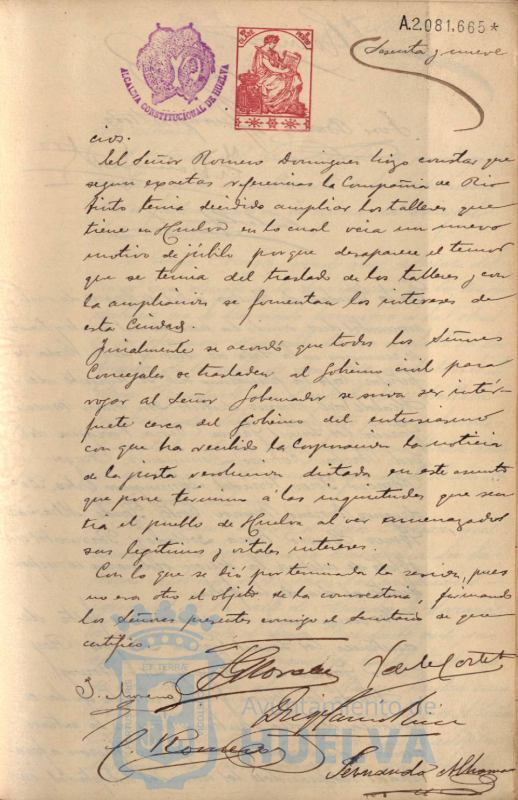 A.2.081.665*
Sesenta y nueve
ALCALDIA CONSTITUCIONAL DE HUELVA
cios.
El Señor Romero Dominguez hizo constar que
segun exactas referencias la Compañia de Rio
tinto tenia decidido ampliar los talleres que
tiene en Huelva en lo cual veia un nuevo
motivo de júbilo porque desaparece el temor
que se tenia del traslado de los talleres y con
la ampliacion se fomentan los intereses de
esta Ciudad.
Finalmente se acordó que todos los Señores
Concejales se trasladen al Gobierno civil para
rogar al Señor Gobernador se sirva ser intér-
prete cerca del Gobierno del entusiasmo
con que ha recibido la Corporacion la noticia
de la justa resolucion dictada en este asunto
que pone término á las inquietudes que sen-
tia el pueblo de Huelva al ver amenazados
sus legitimos y vitales intereses.
Con lo que se dió por terminada la sesion, pues
no era otro el objeto de la convocatoria, firmando
los Señores presentes conmigo el Secretario de que
certifico.
J. Moreno
Romero
Fernando
Ayuntamiento de
HUELVA